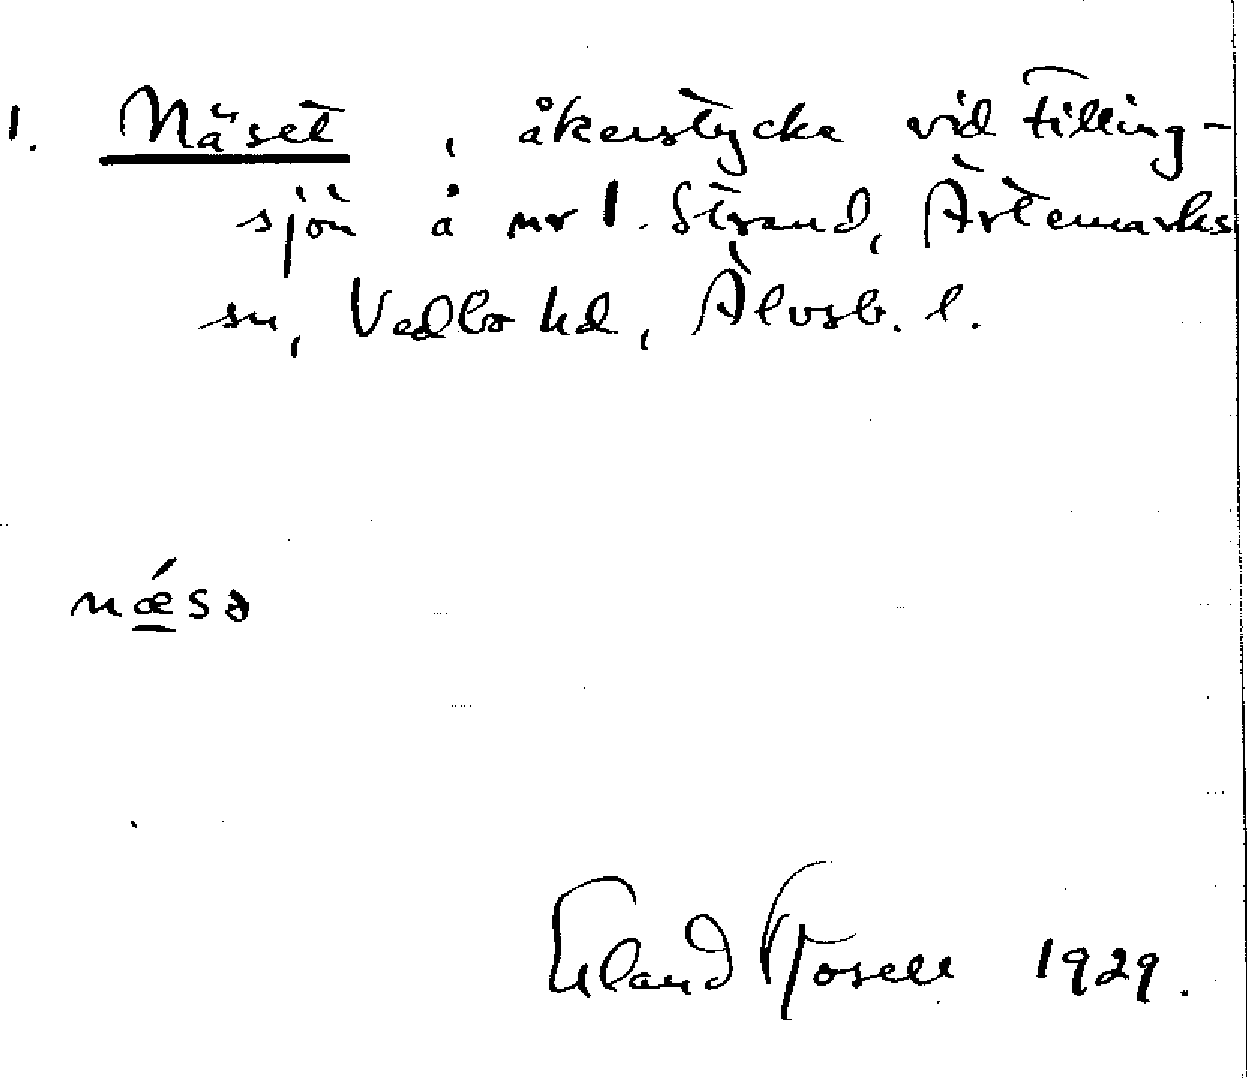 1. Näset, åkerstycke vid Filling-
sjön å nr 1. Strand, Ärtemarks
sn, Vedbo hd, Älvsb. l.
nǽsə
Erland Rosell 1929.